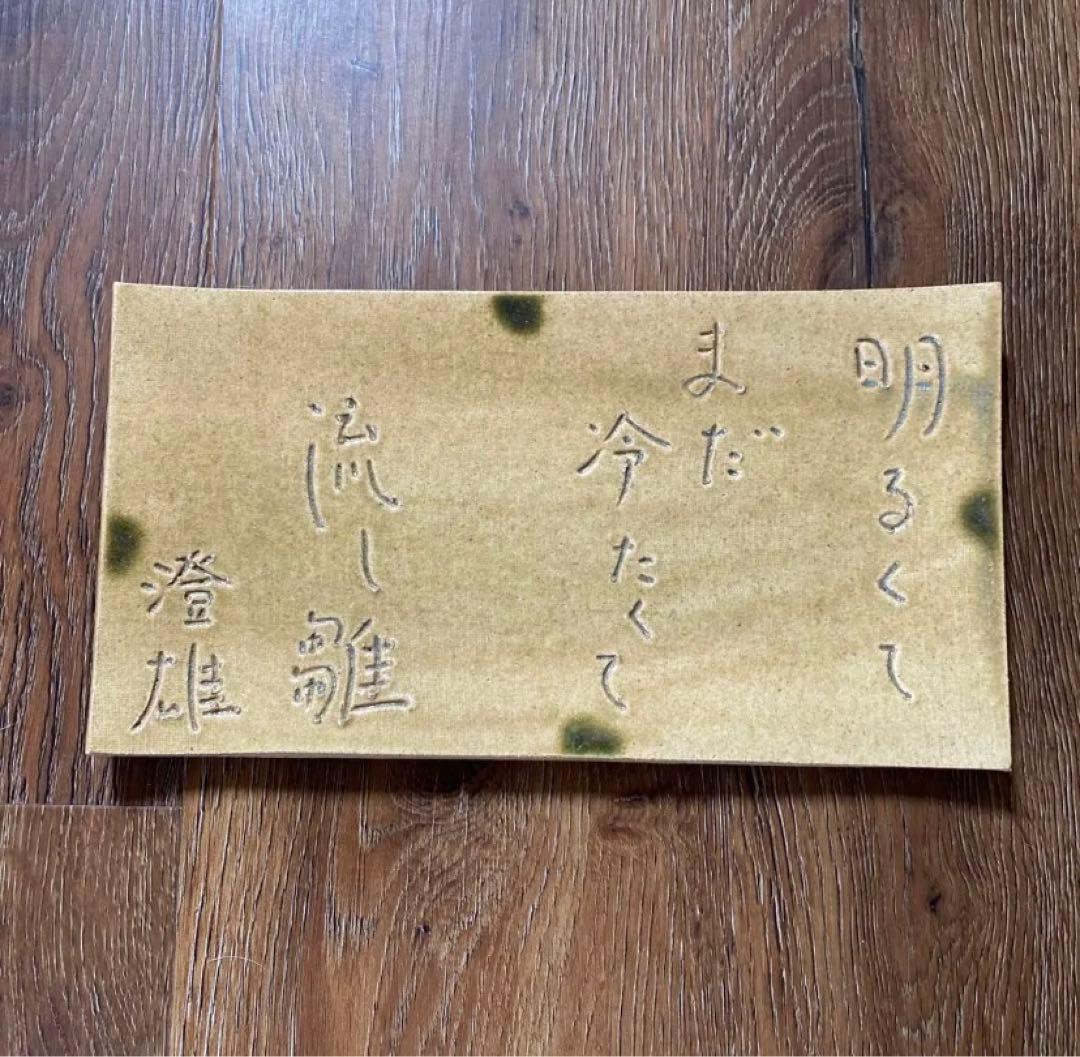 明るくて
まだ
冷たくて
流し雛
澄雄